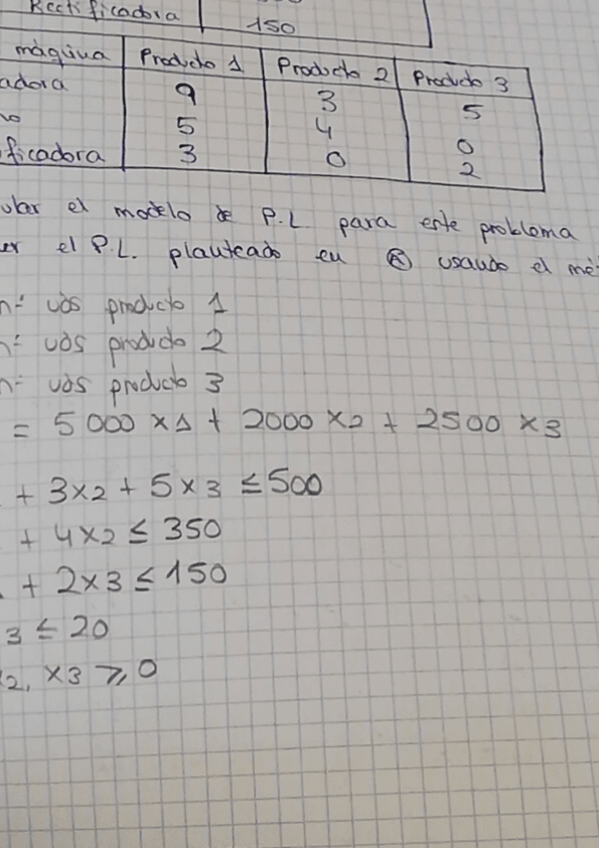 Rectificadora 150
máquina Producto 1 Producto 2 Producto 3
adora 9 3 5
no 5 4 0
ficadora 3 0 2
ular el modelo de P.L. para este problema
er el P.L. planteado en usando el mé
nº uds producto 1
nº uds producto 2
nº uds producto 3
= 5000 x1 + 2000 x2 + 2500 x3
+ 3x2 + 5x3 ≤ 500
+ 4x2 ≤ 350
+ 2x3 ≤ 150
3 ≤ 20
x2, x3 ≥ 0